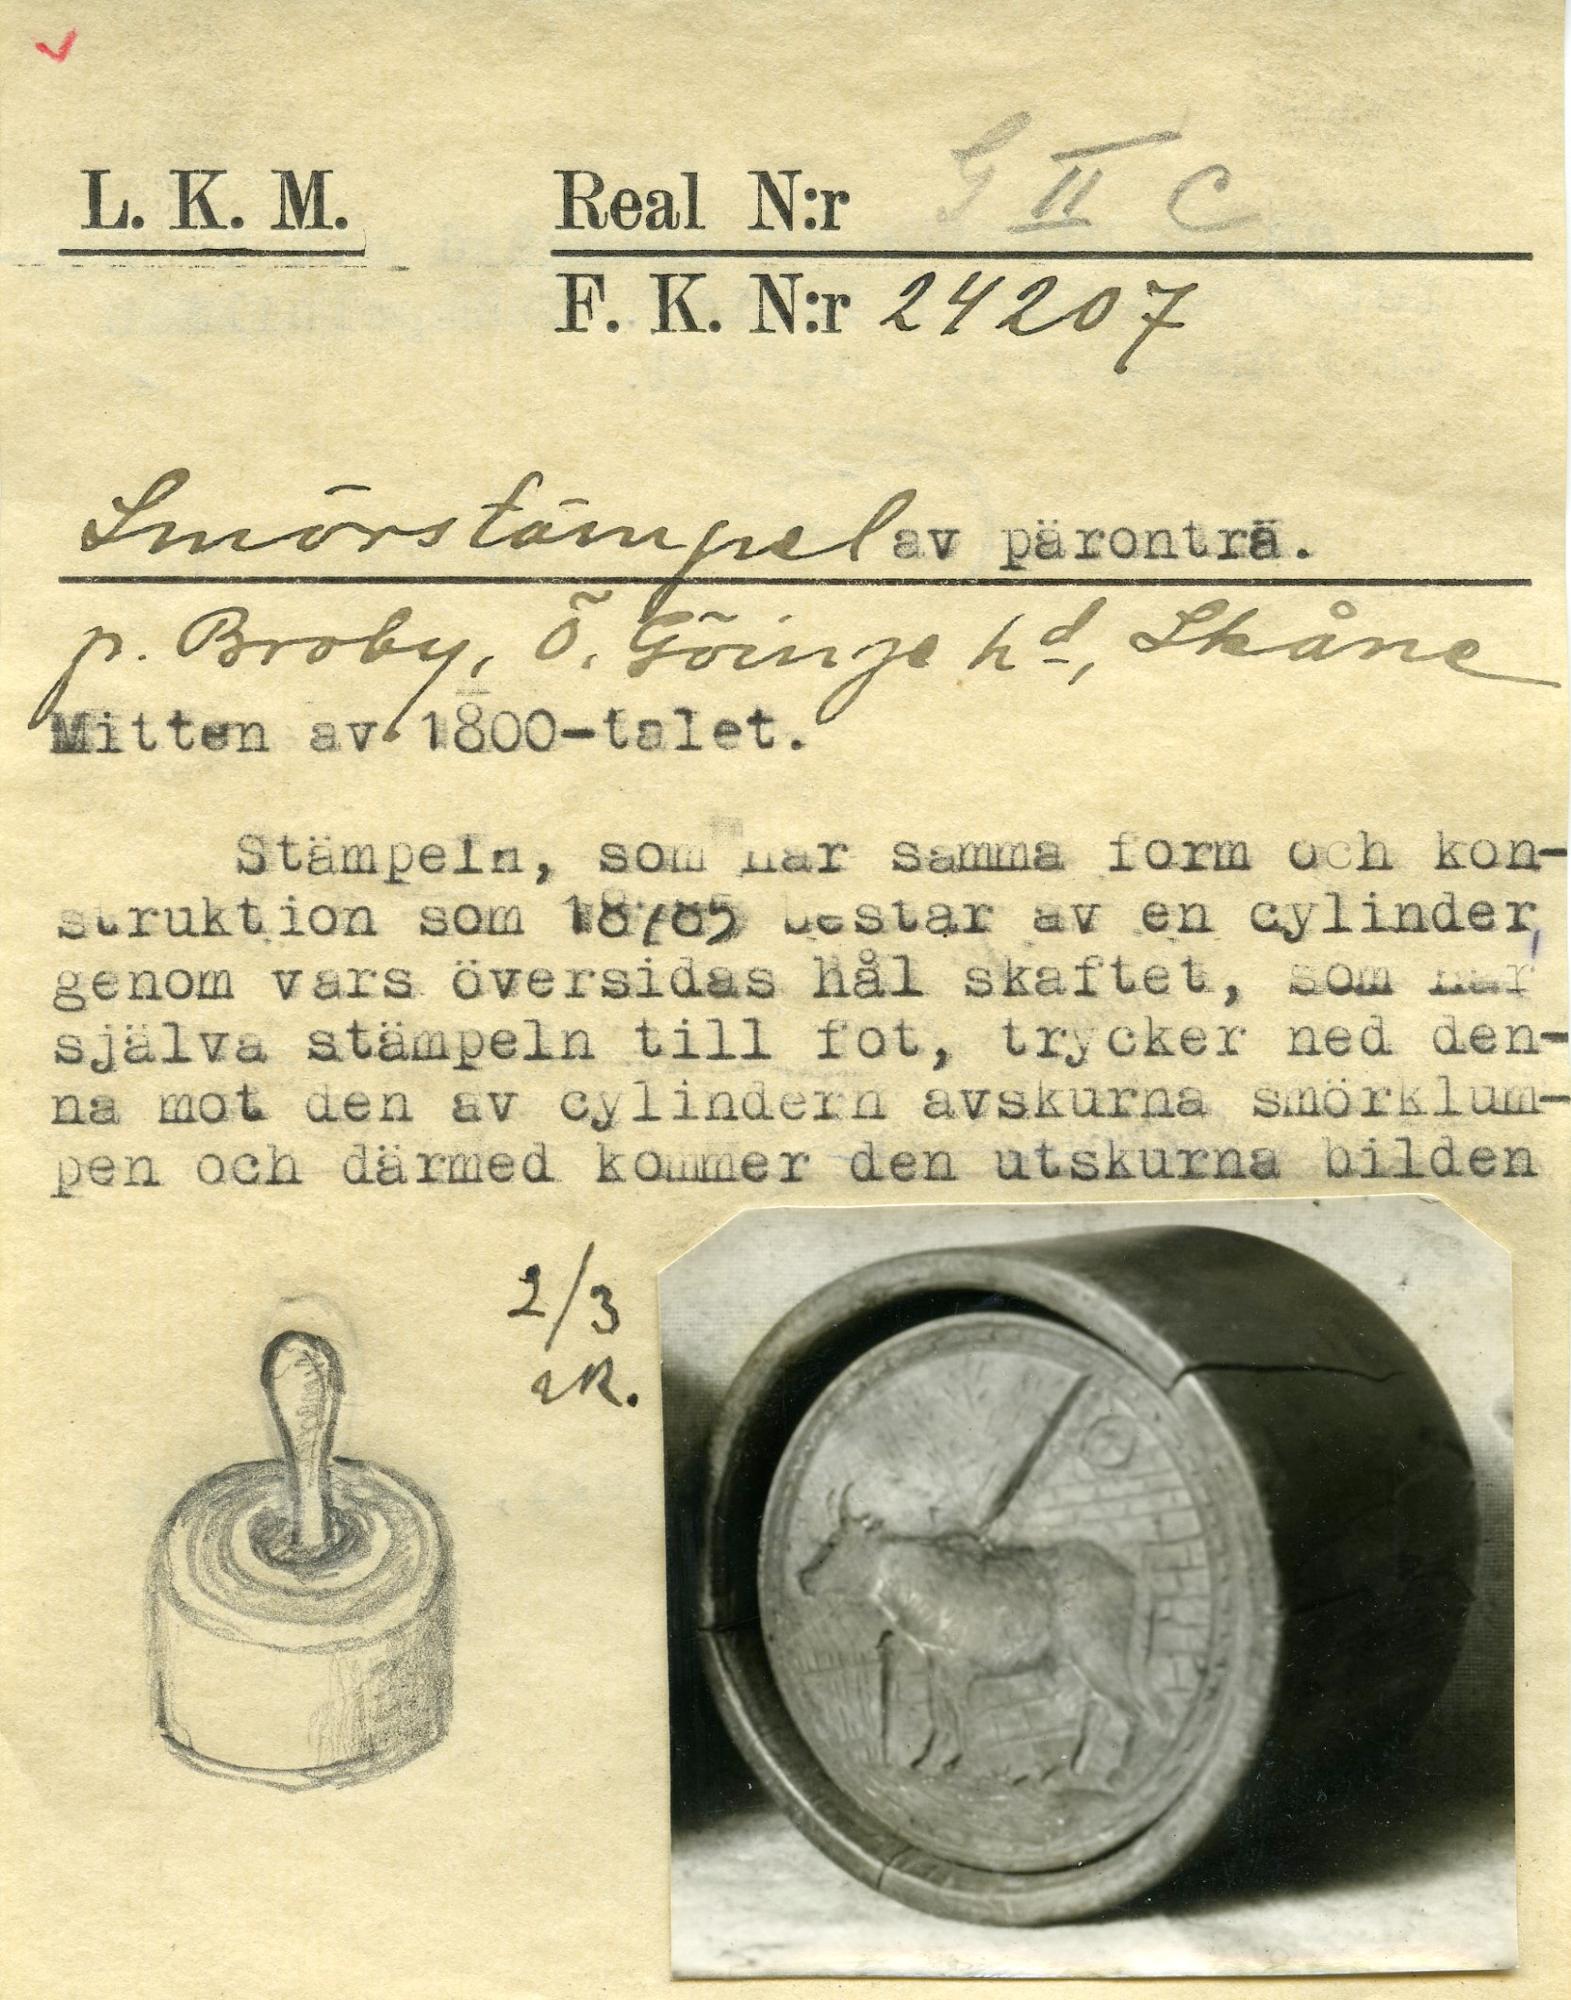 L. K. M. Real N:r G II C
F. K. N:r 24207
Smörstämpel av päronträ.
p. Broby, Ö. Göinge hd, Skåne
Mitten av 1800-talet.
Stämpeln, som har samma form och kon-
struktion som består av en cylinder,
genom vars översidas hål skaftet, som har
själva stämpeln till fot, trycker ned den-
na mot den av cylindern avskurna smörklum-
pen och därmed kommer den utskurna bilden
2/3